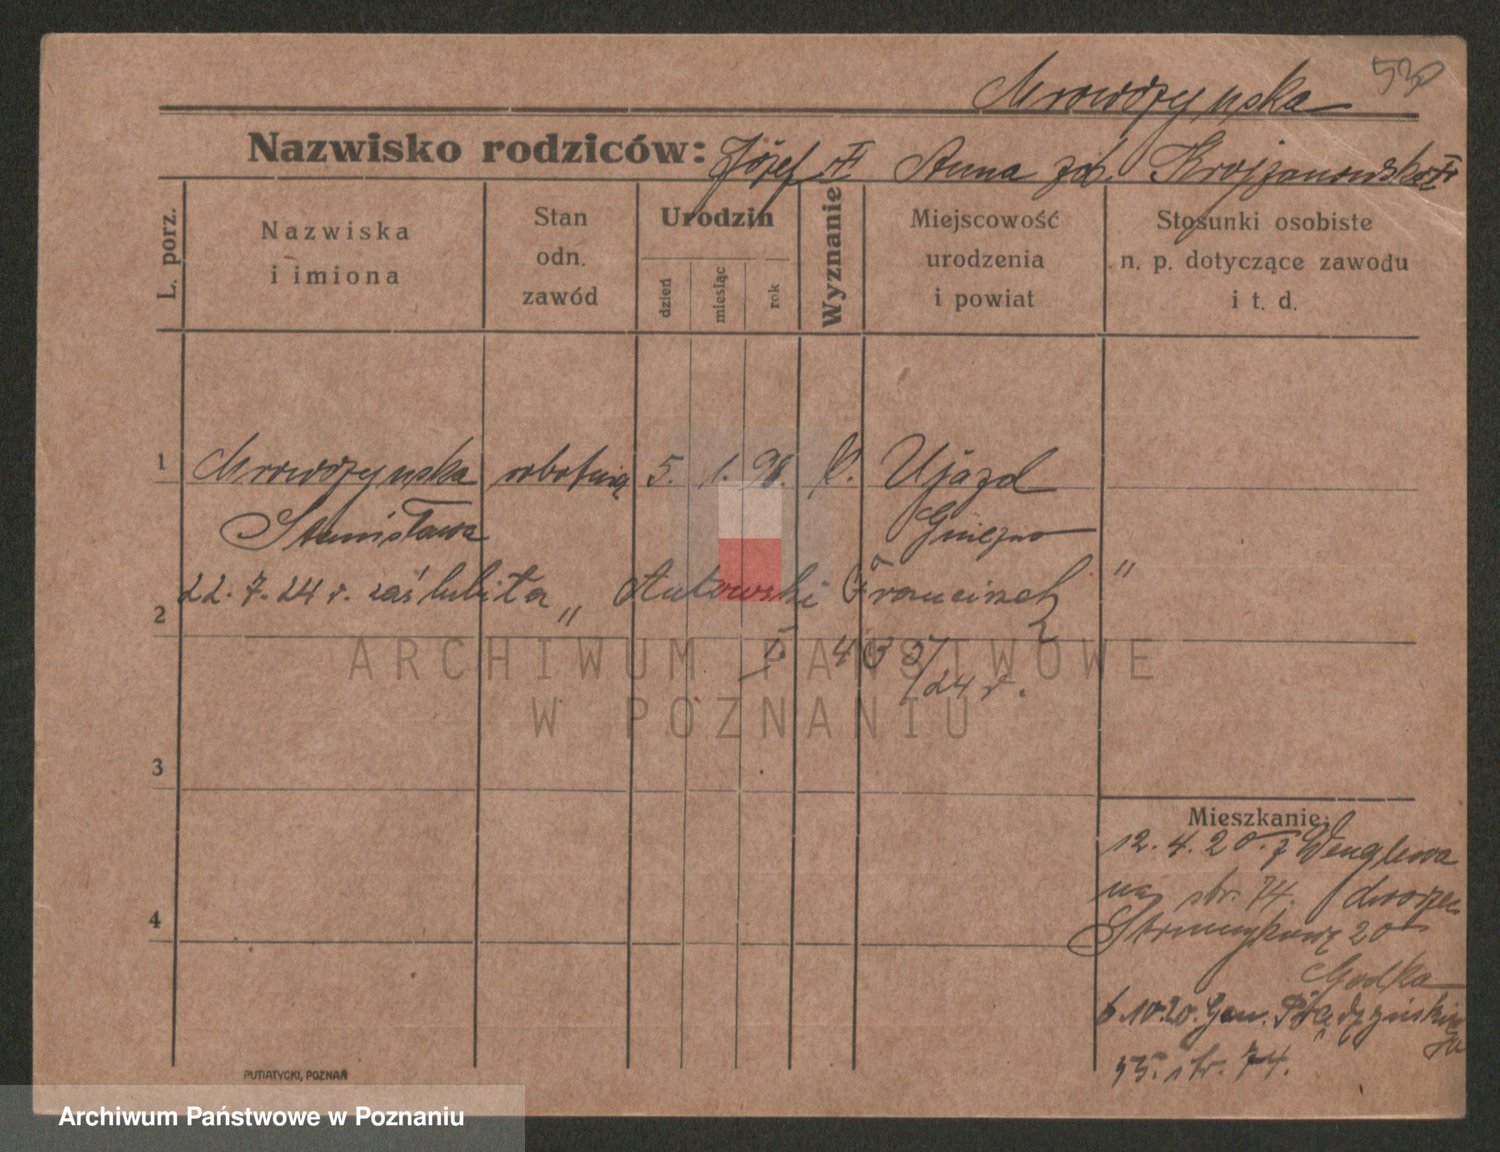 530
Mrowczynska
Nazwisko rodziców: Józef Anna zd. Krojzanowska
L. porz.
Nazwiska i imiona
Stan odn. zawód
Urodzin
dzień
miesiąc
rok
Wyznanie
Miejscowość urodzenia i powiat
Stosunki osobiste n. p. dotyczące zawodu i t. d.
1 Mrowczynska robotnica 5. 1. 98. k. Ujazd
Stanisława Gniezno
22. 7. 24 r. zaślubiła " Antowski Franciszek "
2
ARCHIWUM PAŃSTWOWE
24 r.
W POZNANIU
3
Mieszkanie:
12. 4. 20. z
str. 74. dworzec
4
20
6.10.20. Gen. Prądzyńskiego
55. str. 74.
PUTIATYCKI, POZNAŃ
Archiwum Państwowe w Poznaniu